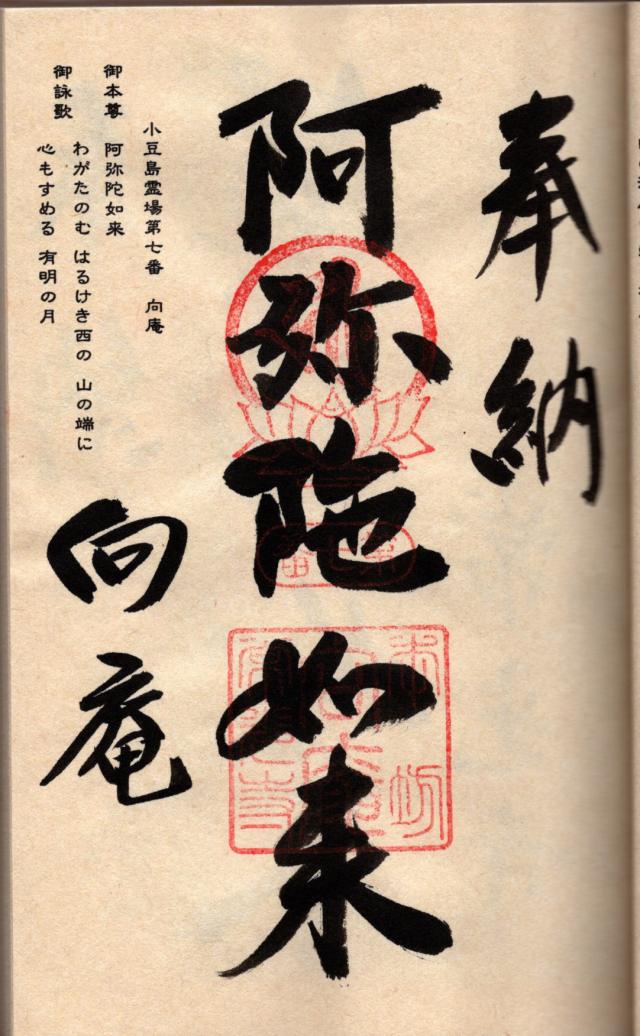 奉納
阿弥陀如来
小豆島霊場第七番 向庵
御本尊 阿弥陀如来
御詠歌 わがたのむ はるけき西の 山の端に
心もすめる 有明の月
向庵